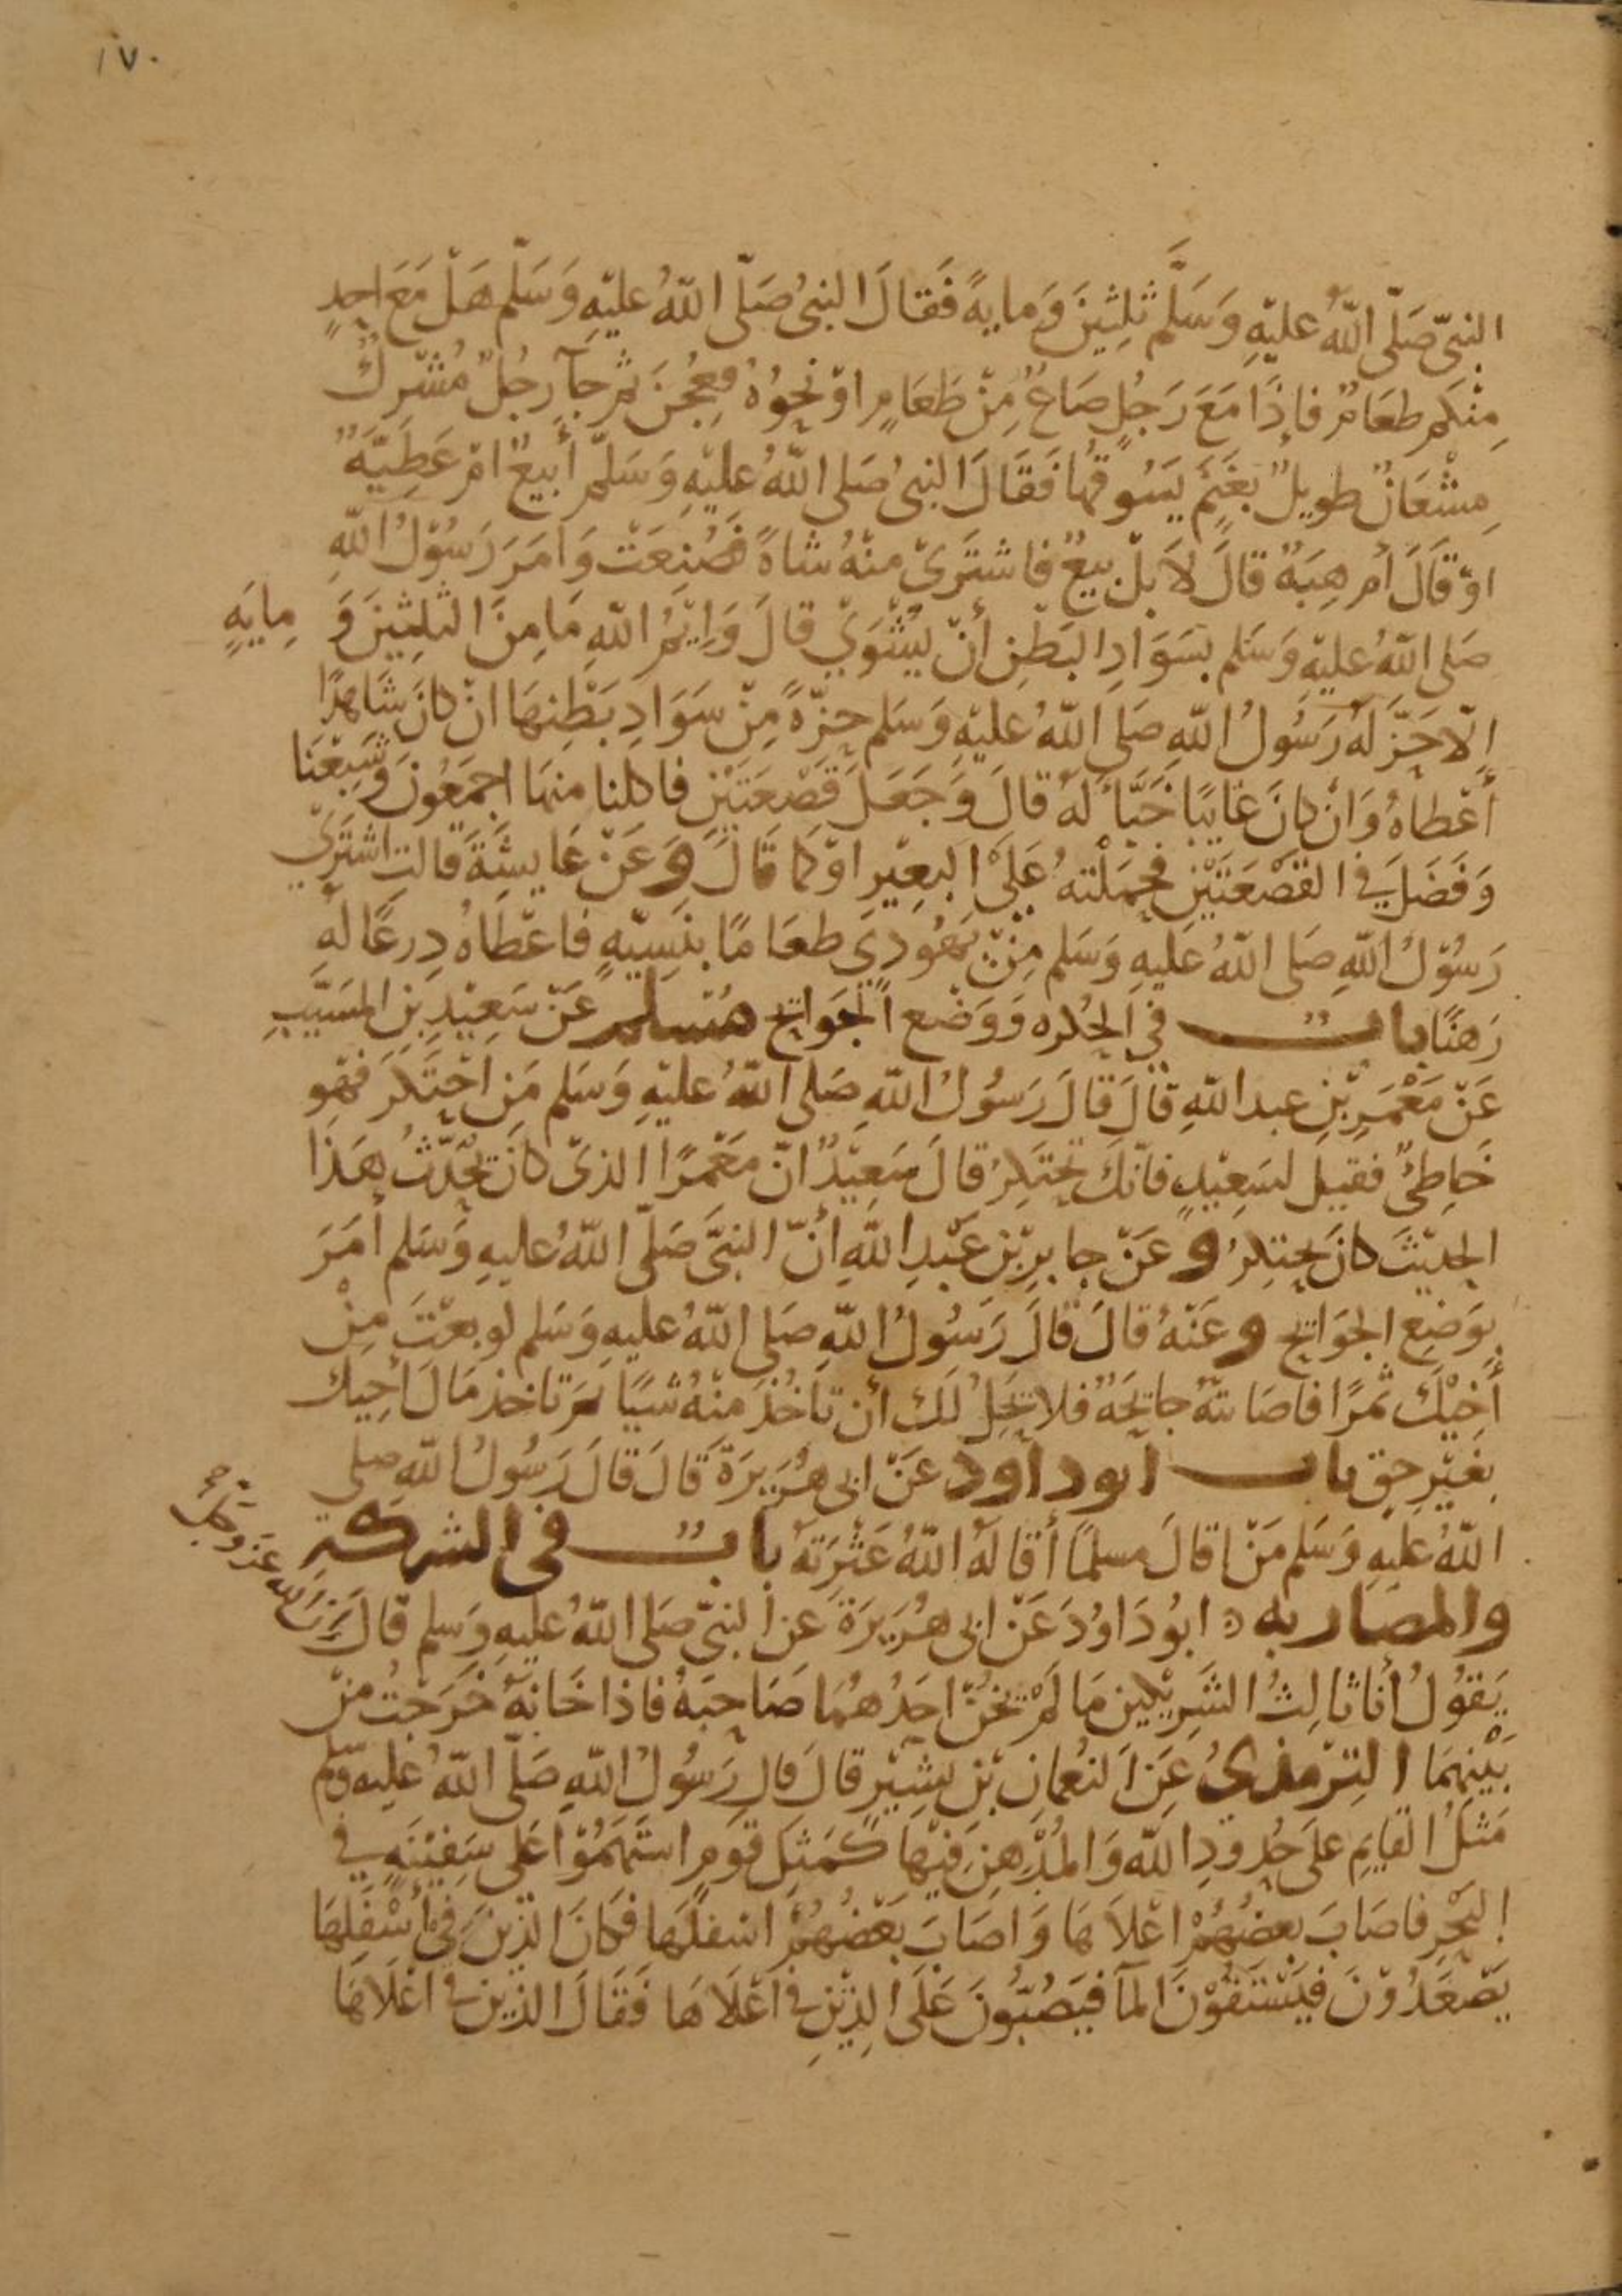 ١٧٠
النبيّ صَلّى اللّهُ عليْهِ وَسَلَّم ثلِثِينَ وَمايةً فَقالَ النبيُ صَلّى اللّهُ عليْهِ وَسَلّم هَلْ مَعَ احدٍ
مِنْكم طعَامٌ فاذَا مَعَ رَجُلٍ صَاعٌ مِنْ طَعَامٍ اوْ نحوُهُ فعُجِنَ ثم جآ رجُلٌ مُشْركٌ
مِشْعَانٌ طويلٌ بغَنَمٍ يَسُوقُها فَقَالَ النبيُ صَلى اللّهُ عليْهِ وَسَلّم أبيعٌ امْ عَطِيّةٌ
اوْ قَالَ أم هِبَةٌ قالَ لاَ بلْ بيعٌ فاشتَرَىْ منْهُ شاةً فصُنِعَتْ وَامَرَ رَسُوْلُ اللّهِ
صَلى اللّهُ عليْهِ وَسَلم بسَوَادِ البَطْنِ أنْ يُشْوَيْ قالَ وَايْمُ اللّهِ مَا مِنَ الثلِثِينَ وَ مِايَةٍ
اِلّا حَزَّ لَهُ رَسُولُ اللّهِ صَلى اللّهُ عليْهِ وَسَلم حزّةً مِنْ سَوَادِ بَطْنِهَا انْ كانَ شَاهِدًا
أعْطاهُ وَانْ كانَ غايبًا خَبَّأ لهُ قالَ وَجَعَلَ قَصْعَتَيْنِ فاكلنا منهَا اجمَعُونَ وَشَبِعْنَا
وَفَضَلَ في القصْعَتَيْنِ فحمَلْتهُ عَلَىْ البعِيْرِ اوْ كما قَالَ وَعَنْ عَايشَةَ قالت اشتَرَيْ
رَسُوْلُ اللّهِ صَلى اللّهُ عَليْهِ وَسَلم مِنْ يَهُودِيّ طعَامًا بنَسِيّةٍ فاعْطاهُ دِرعًا لهُ
رَهنًا باب في الحكره وَوَضْع الجَوَايح مُسْلم عَنْ سَعِيْدِ بنِ المسَيّبِ
عَنْ مَعْمَرِ بْنِ عبد اللّهِ قالَ قالَ رَسُولُ اللّهِ صَلى اللّهُ عليْهِ وَسَلم مَن احْتَكَرَ فهو
خَاطِئٌ فقيل لسَعِيْدٍ فانّكَ تحتَكِرُ قالَ سَعِيْدٌ انّ مَعْمَرًا الذيْ كانَ يُحَدّثُ هَذا
الحديْثَ كانَ يحتكِرُ وعَنْ جابرِ بْنِ عَبْدِ اللّهِ أنّ النبيَّ صَلّى اللّهُ عليهِ وَسَلم أمَرَ
بوَضعِ الجوَايح وعَنْهُ قالَ قالَ رَسُولُ اللّهِ صَلى اللّهُ عليهِ وَسَلم لو بعْتَ مِنْ
أخيْكَ ثمرًا فاصَابتهُ جايحَةٌ فلا يحِلُ لَكَ أن تاخُذَ منْهُ شيًا بم تاخذ مَالَ اخِيك
بغَيْرِ حق باب ابو داود عَنْ ابي هُرَيرَةَ قالَ قالَ رَسُولُ اللّهِ صلى
اللّهُ عليهِ وَسَلم مَنْ اقالَ مسلمًا أقالَهُ اللّهُ عَثْرَتهُ باب في الشركة
والمضاربه ابُو دَاوُدَ عَنْ ابي هُرَيرَةَ عَن النبيّ صَلى اللّهُ عليهِ وَسلم قالَ انّ الله عز وجل صح
يَقوُلُ أنا ثالِثُ الشَرِيْكين مَا لمْ يخُنْ احَدُهُمَا صَاحِبَهُ فاذا خَانهُ خَرَجْتُ منْ
بَيْنِهمَا الترمذيُ عَن النعُمانِ بْنِ بشيْرٍ قالَ قال رَسُولُ اللّهِ صَلّى اللّهُ عليه وسلم
مَثَلُ القايمِ علَى حُدودِ اللّه وَالمُدْهِنِ فيْها كَمَثلِ قومٍ استَهَمُوْا عَلى سَفِيْنَةٍ في
البَحْرِ فاصَابَ بعضُهُمْ اعْلاَهَا وَاصَابَ بَعْضُهُمْ اسْفلَها فكانَ الذِينَ في أسْفَلِهَا
يَصْعَدُوْنَ فيَسْتَقوْنَ المآ فيَصُبّونَ عَلَى الذِيْنِ في اعْلاَهَا فَقَالَ الذيْن في اعْلاَهَا